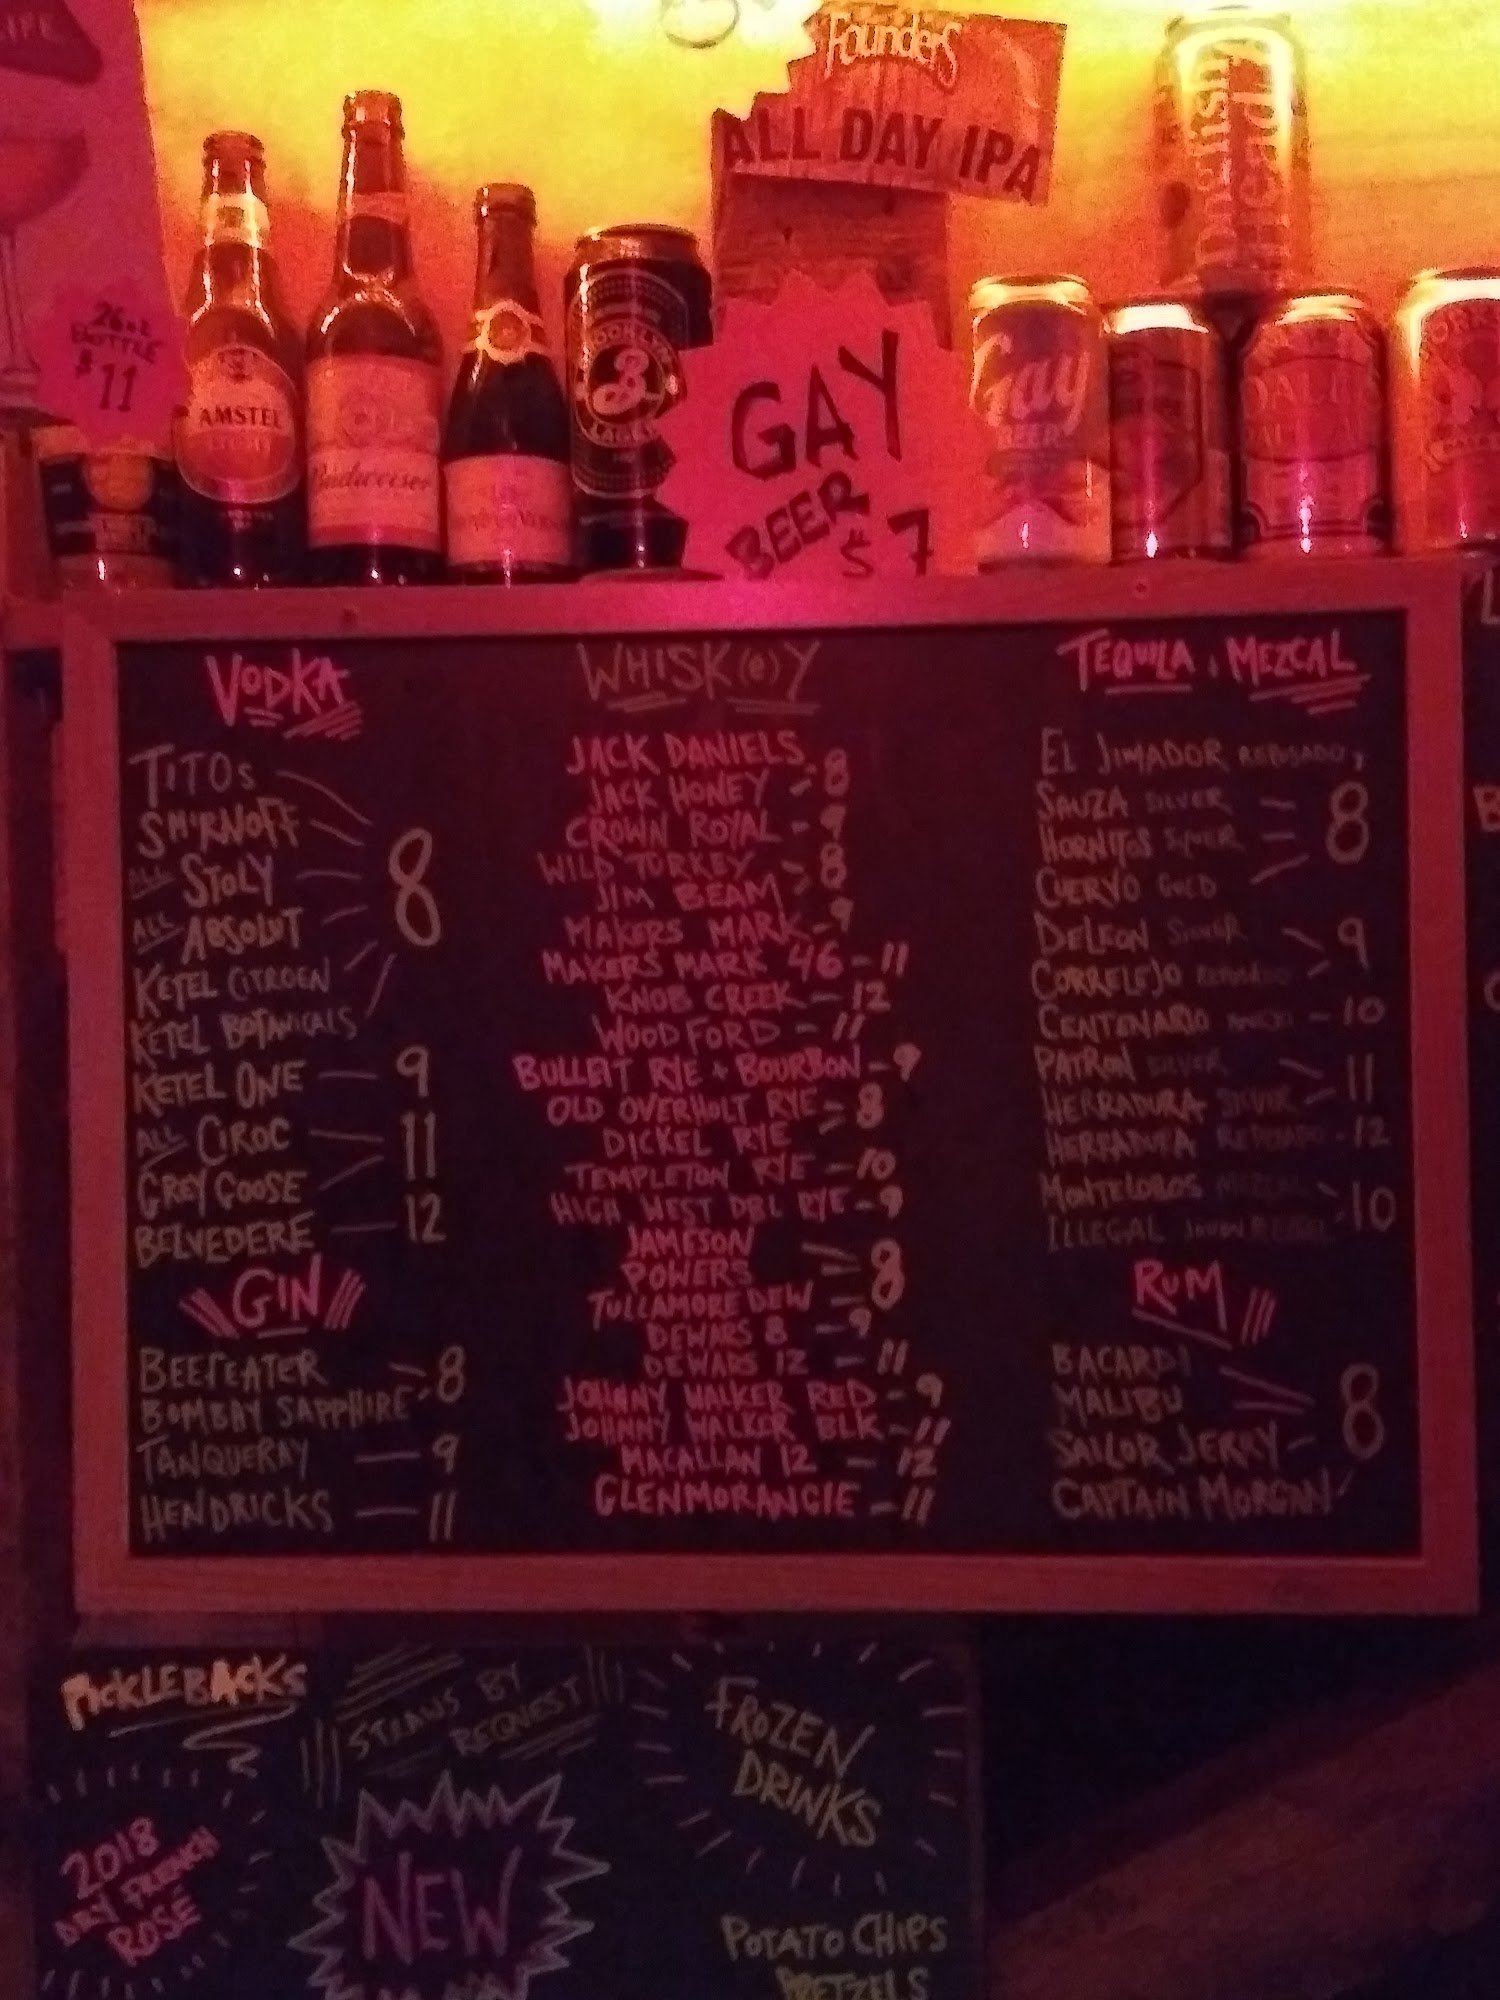 Founders
ALL DAY IPA
26oz
BOTTLE
$11
AMSTEL
LIGHT
Budweiser
BROOKLYN
B
LAGER
GAY
BEER
$7
Gay
BEER
VODKA
TITOS
SMIRNOFF
ALL STOLY
ALL ABSOLUT
KETEL CITROEN
KETEL BOTANICALS
8
KETEL ONE — 9
ALL CIROC
GREY GOOSE
11
BELVEDERE — 12
GIN
BEEFEATER
BOMBAY SAPPHIRE
8
TANQUERAY — 9
HENDRICKS — 11
WHISK(E)Y
JACK DANIELS
JACK HONEY
8
CROWN ROYAL - 9
WILD TURKEY
JIM BEAM
8
MAKERS MARK - 9
MAKERS MARK 46 - 11
KNOB CREEK - 12
WOODFORD - 11
BULLEIT RYE + BOURBON - 9
OLD OVERHOLT RYE
DICKEL RYE
8
TEMPLETON RYE - 10
HIGH WEST DBL RYE - 9
JAMESON
POWERS
TULLAMORE DEW
8
DEWARS 8 - 9
DEWARS 12 - 11
JOHNNY WALKER RED - 9
JOHNNY WALKER BLK - 11
MACALLAN 12 - 12
GLENMORANGIE - 11
TEQUILA , MEZCAL
EL JIMADOR REPOSADO,
SAUZA SILVER
HORNITOS SILVER
CUERVO GOLD
8
DELEON SILVER
CORRELEJO REPOSADO
9
CENTENARIO - 10
PATRON SILVER
HERRADURA SILVER
11
HERRADURA REPOSADO - 12
MONTELOBOS MEZCAL
ILLEGAL
10
RUM
BACARDI
MALIBU
SAILOR JERRY
CAPTAIN MORGAN
8
PICKLEBACKS
STRAWS BY
REQUEST
FROZEN
DRINKS
2018
DRY FRENCH
ROSÉ
NEW
POTATO CHIPS
PRETZELS